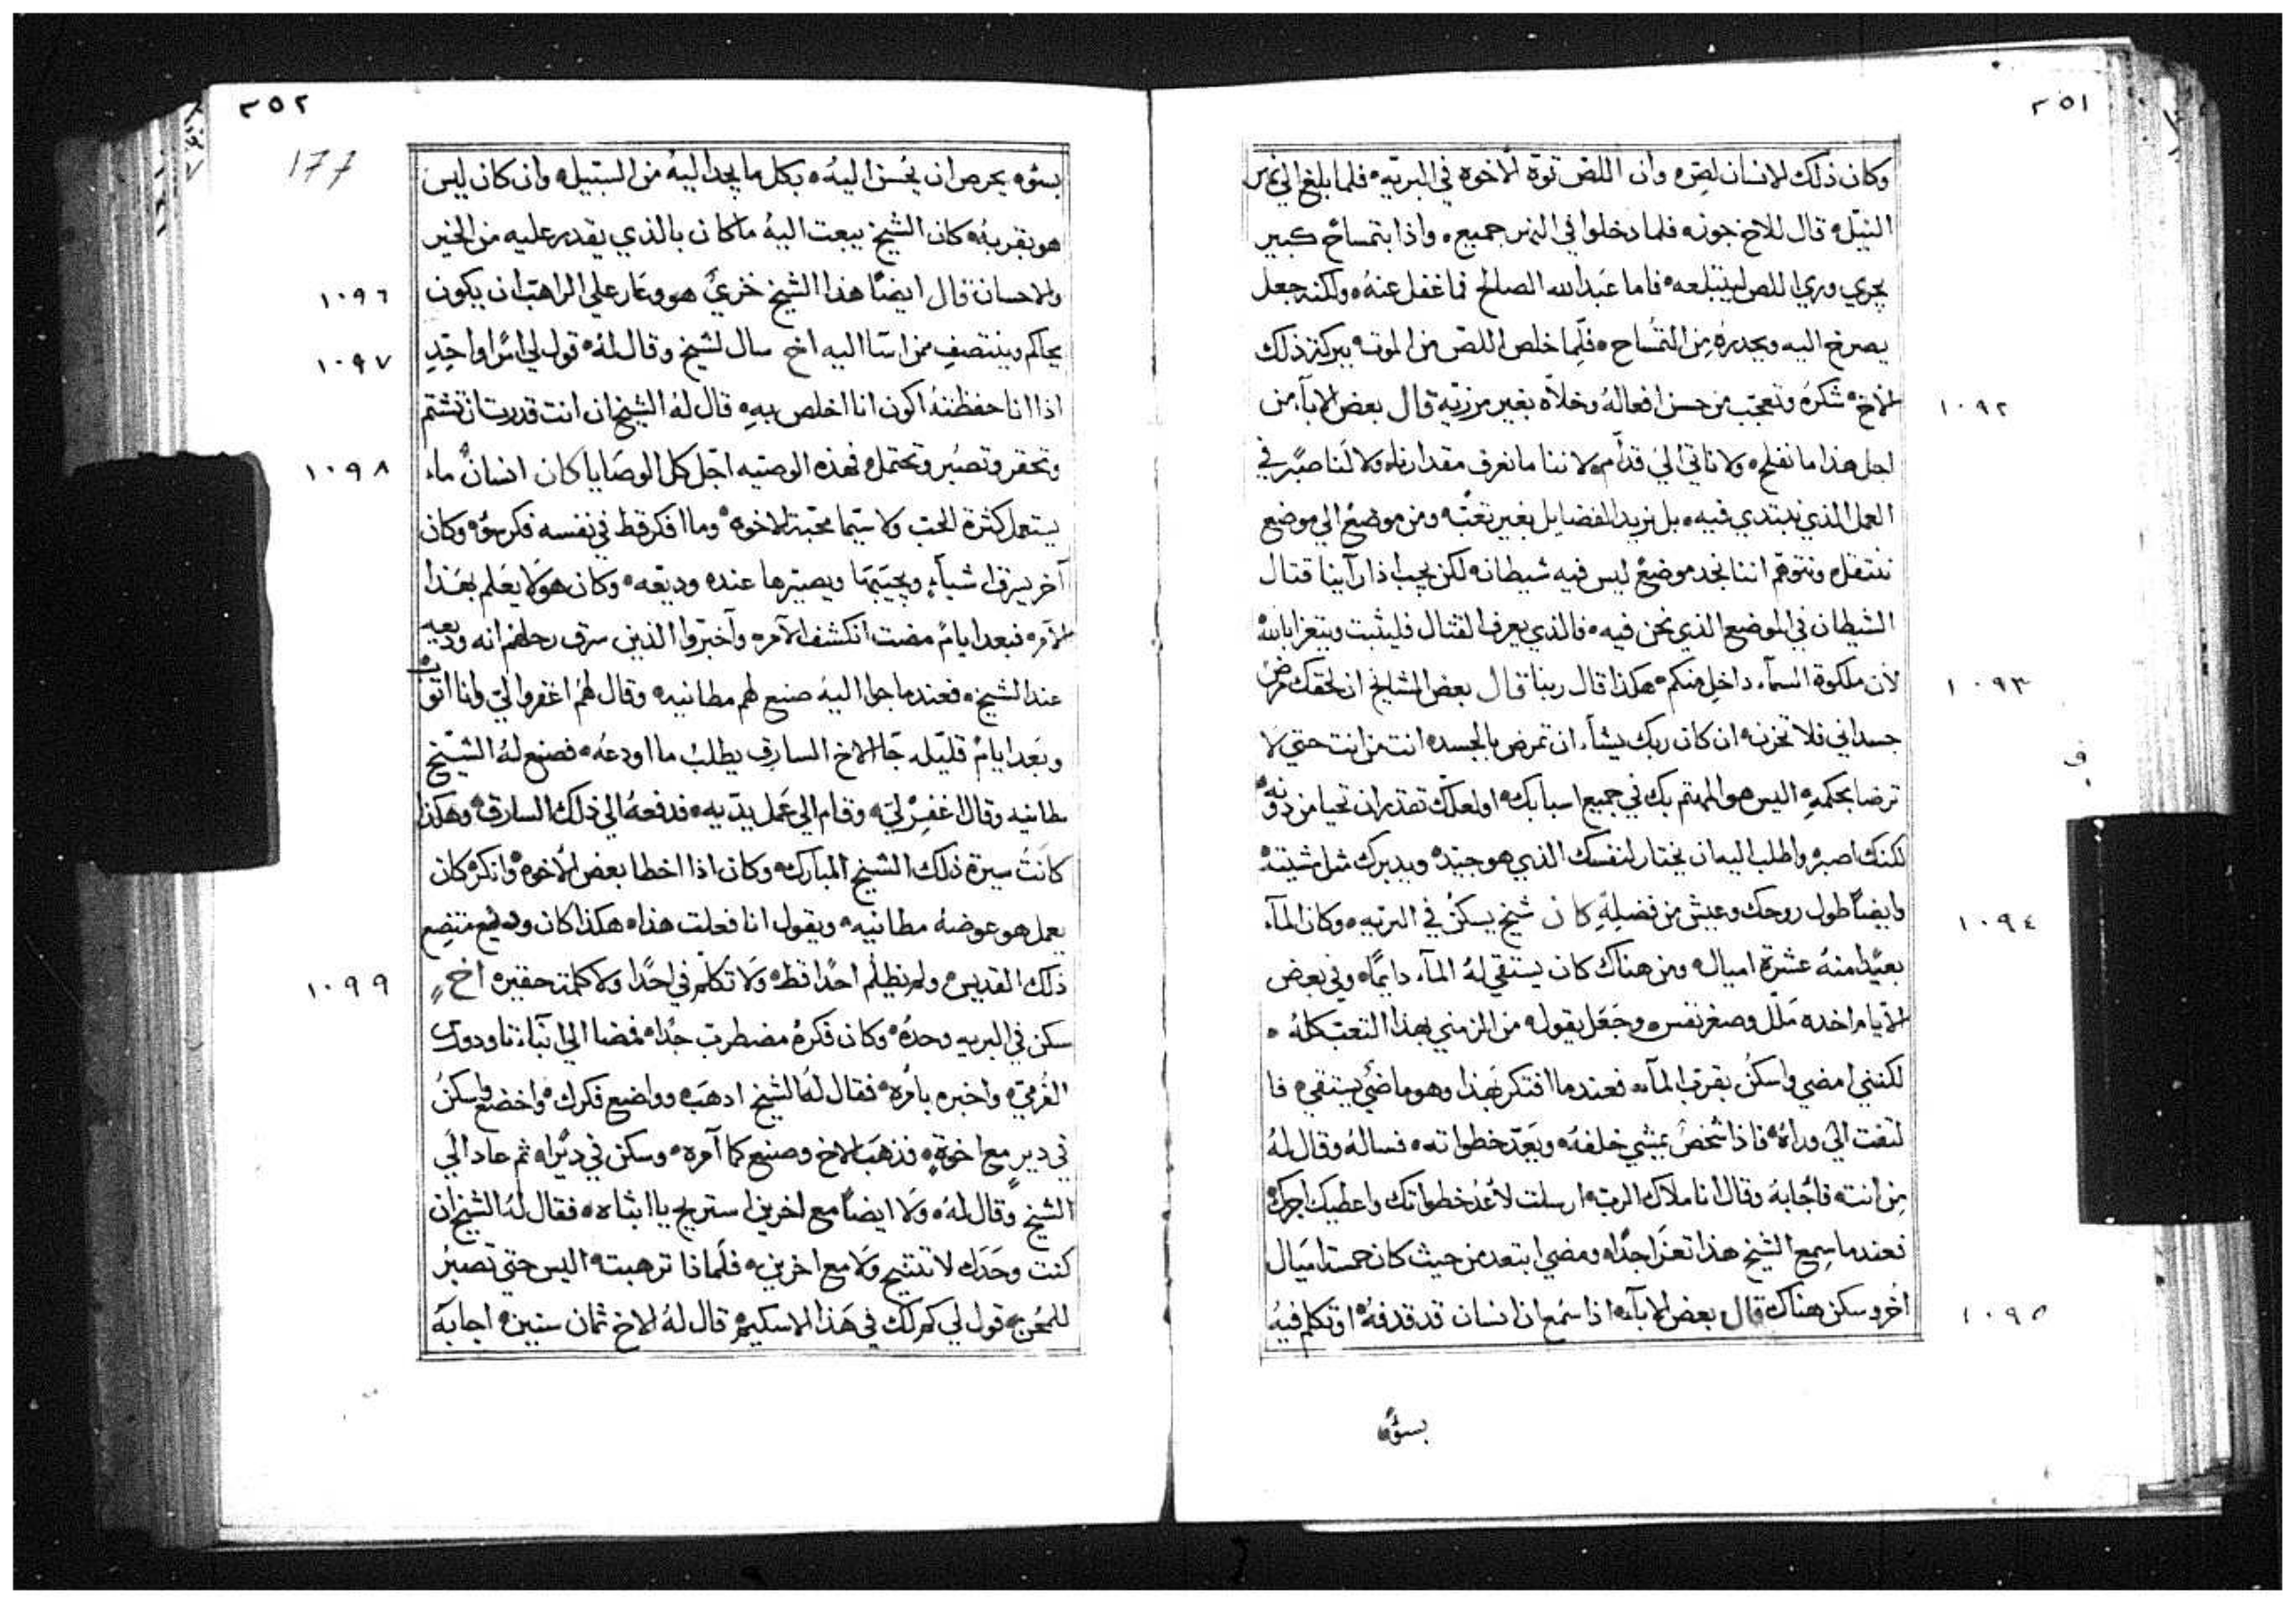 ٢٥١
وكان ذلك الانسان لص، وان اللص توة الاخوة في البريه، فلما بلغ الي نهر
النيل، قال للاخ جوزه فلما دخلوا في النهر جميع، واذا بتمساح كبير
يجري وري اللص ليبتلعه، فاما عبدالله الصالح فما غفل عنه، ولكنه جعل
يصرخ اليه ويحدره من التمساح، فلما خلص اللص من الموت، ببركة ذلك
الاخ، شكره وتعجب من حسن افعاله وخلاه بغير مرزية قال بعض الابآ، من
١٠٩٢
اجل هذا ما نفلح، ولا ناتي الي قدام، لاننا ما نعرف مقدارنا، ولا لنا صبر في
العمل الذي نبتدي فيه، بل نريد الفضايل بغير تعب، ومن موضع الي موضع
ننتقل، ونتوهم اننا نجد موضع ليس فيه شيطان، لكن يجب اذا رآينا قتال
الشيطان في الموضع الذي نحن فيه، فالذي يعرف القتال فليثبت ويتعزا بالله
لآن ملكوة السمآء داخل منكم، هكذا قال ربنا قال بعض المشايخ ان لحقك مرض
١٠٩٣
جسداني فلا تحزن، ان كان ربك يشآء، ان تمرض بالجسد، انت من انت حتي لا
ترضا بحكمه، اليس هو المهتم بك في جميع اسبابك، اولعلك تقدر ان تحيا من دونه
لكنك اصبر، واطلب اليه ان يختار لنفسك الذي هو جيد، ويدبرك مثل مشيته
وايضاً طول روحك وعيش من فضله كان شيخ يسكن في البريه، وكان المآء،
١٠٩٤
بعيد منه عشرة اميال، ومن هناك كان يستقي له المآء، دايماً، وفي بعض
الايام اخده ملل وصغر نفس، وجعل يقول، من الزمني بهذا التعب كله،
لكنني امضي واسكن بقرب المآء، فعندما افتكر بهذا وهو ماضي يستقي، فا
لتفت الي وراه، فاذا شخص يمشي خلفه، ويعد خطواته، فساله وقال له
من انت، فاجابه وقال انا ملاك الرب، ارسلت لاعد خطواتك واعطيك اجرك
فعندما سمع الشيخ هذا تعزا جداً، ومضي ابتعد من حيث كان خمسة اميال
اخر وسكن هناك قال بعض الابآء، اذا سمع ان انسان قد قدفه، او تكلم فيه
١٠٩٥
بسؤ
٢٥٢
177
بسؤ، يحرص ان يحسن اليه، بكل ما يجد اليه من السبيل، وان كان ليس
هو بقربه، كان الشيخ يبعت اليه ما كان بالذي يقدر عليه من الخير
والاحسان قال ايضاً هذا الشيخ خزي هو وعار علي الراهب ان يكون
١٠٩٦
يحاكم وينتصف من اسآ اليه اخ سال لشيخ وقال له، قول لي امراً واحد
١٠٩٧
اذا انا حفظته اكون انا اخلص به، قال له الشيخ ان انت قدرت ان تشتم
وتحقر وتصبر وتحتمل، فهذه الوصيه اجل كل الوصايا كان انسان ما،
١٠٩٨
يستعمل كثرة الحب ولا سيما محبة الاخوه، وما افكر قط في نفسه فكر سؤ، وكان
آخر يسرق اشيآء، ويجيبها ويصيرها عنده وديعه، وكان هو لا يعلم بهذا
الآمر، فبعد ايام مضت انكشف الآمر، وآخبروا الذين سرق رحلهم انه وديعه
عند الشيخ، فعندما جوا اليه صنع لهم مطانيه، وقال لهم اغفروا لي، وانا اتوب
وبعد ايام قليله جآ الاخ السارق يطلب ما اودعه، فصنع له الشيخ
مطانيه وقال اغفر لي، وقام الي عمل يديه، فدفعه الي ذلك السارق، وهكذا
كانت سيرة ذلك الشيخ المبارك، وكان اذا اخطا بعض الاخوه، وانكر، كان
يعمل هو عوضه مطانيه، ويقول انا فعلت هذا، هكذا كان وديع متضع
ذلك القديس، ولم يظلم احداً قط، ولا تكلم في احداً ولا كلمة حقيره اخ
١٠٩٩
سكن في البريه وحده، وكان فكره مضطرب جداً، فمضا الي آنبآء تاودورس
الفرمي، واخبره بامره، فقال له الشيخ ادهب، وواضع فكرك، واخضع واسكن
في دير مع اخوة، فذهب الاخ وصنع كما آمره، وسكن في دير، ثم عاد الي
الشيخ وقال له، ولا ايضاً مع اخرين استريح يا ابتاه، فقال له الشيخ ان
كنت وحدك لا تنتيح ولا مع اخرين، فلماذا ترهبت، اليس حتي تصبر
للمحن، قول لي كم لك في هذا الاسكيم، قال له الاخ ثمان سنين، اجابه